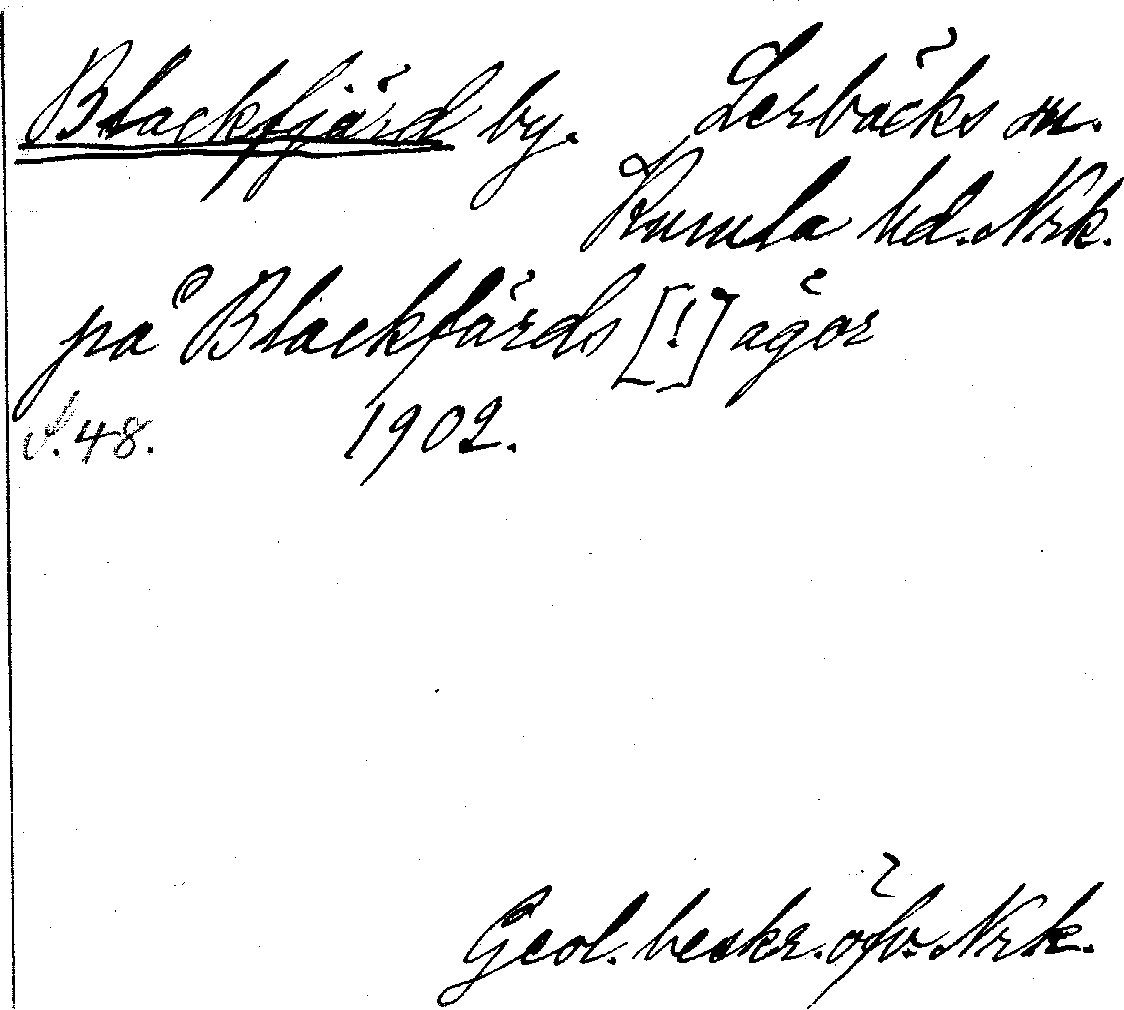 Blackfjärd by. Lerbäcks sn.
Kumla hd. Nrk.
på Blackfärds [!] ägor
S. 48. 1902.
Geol. beskr. öfv. Nrk.